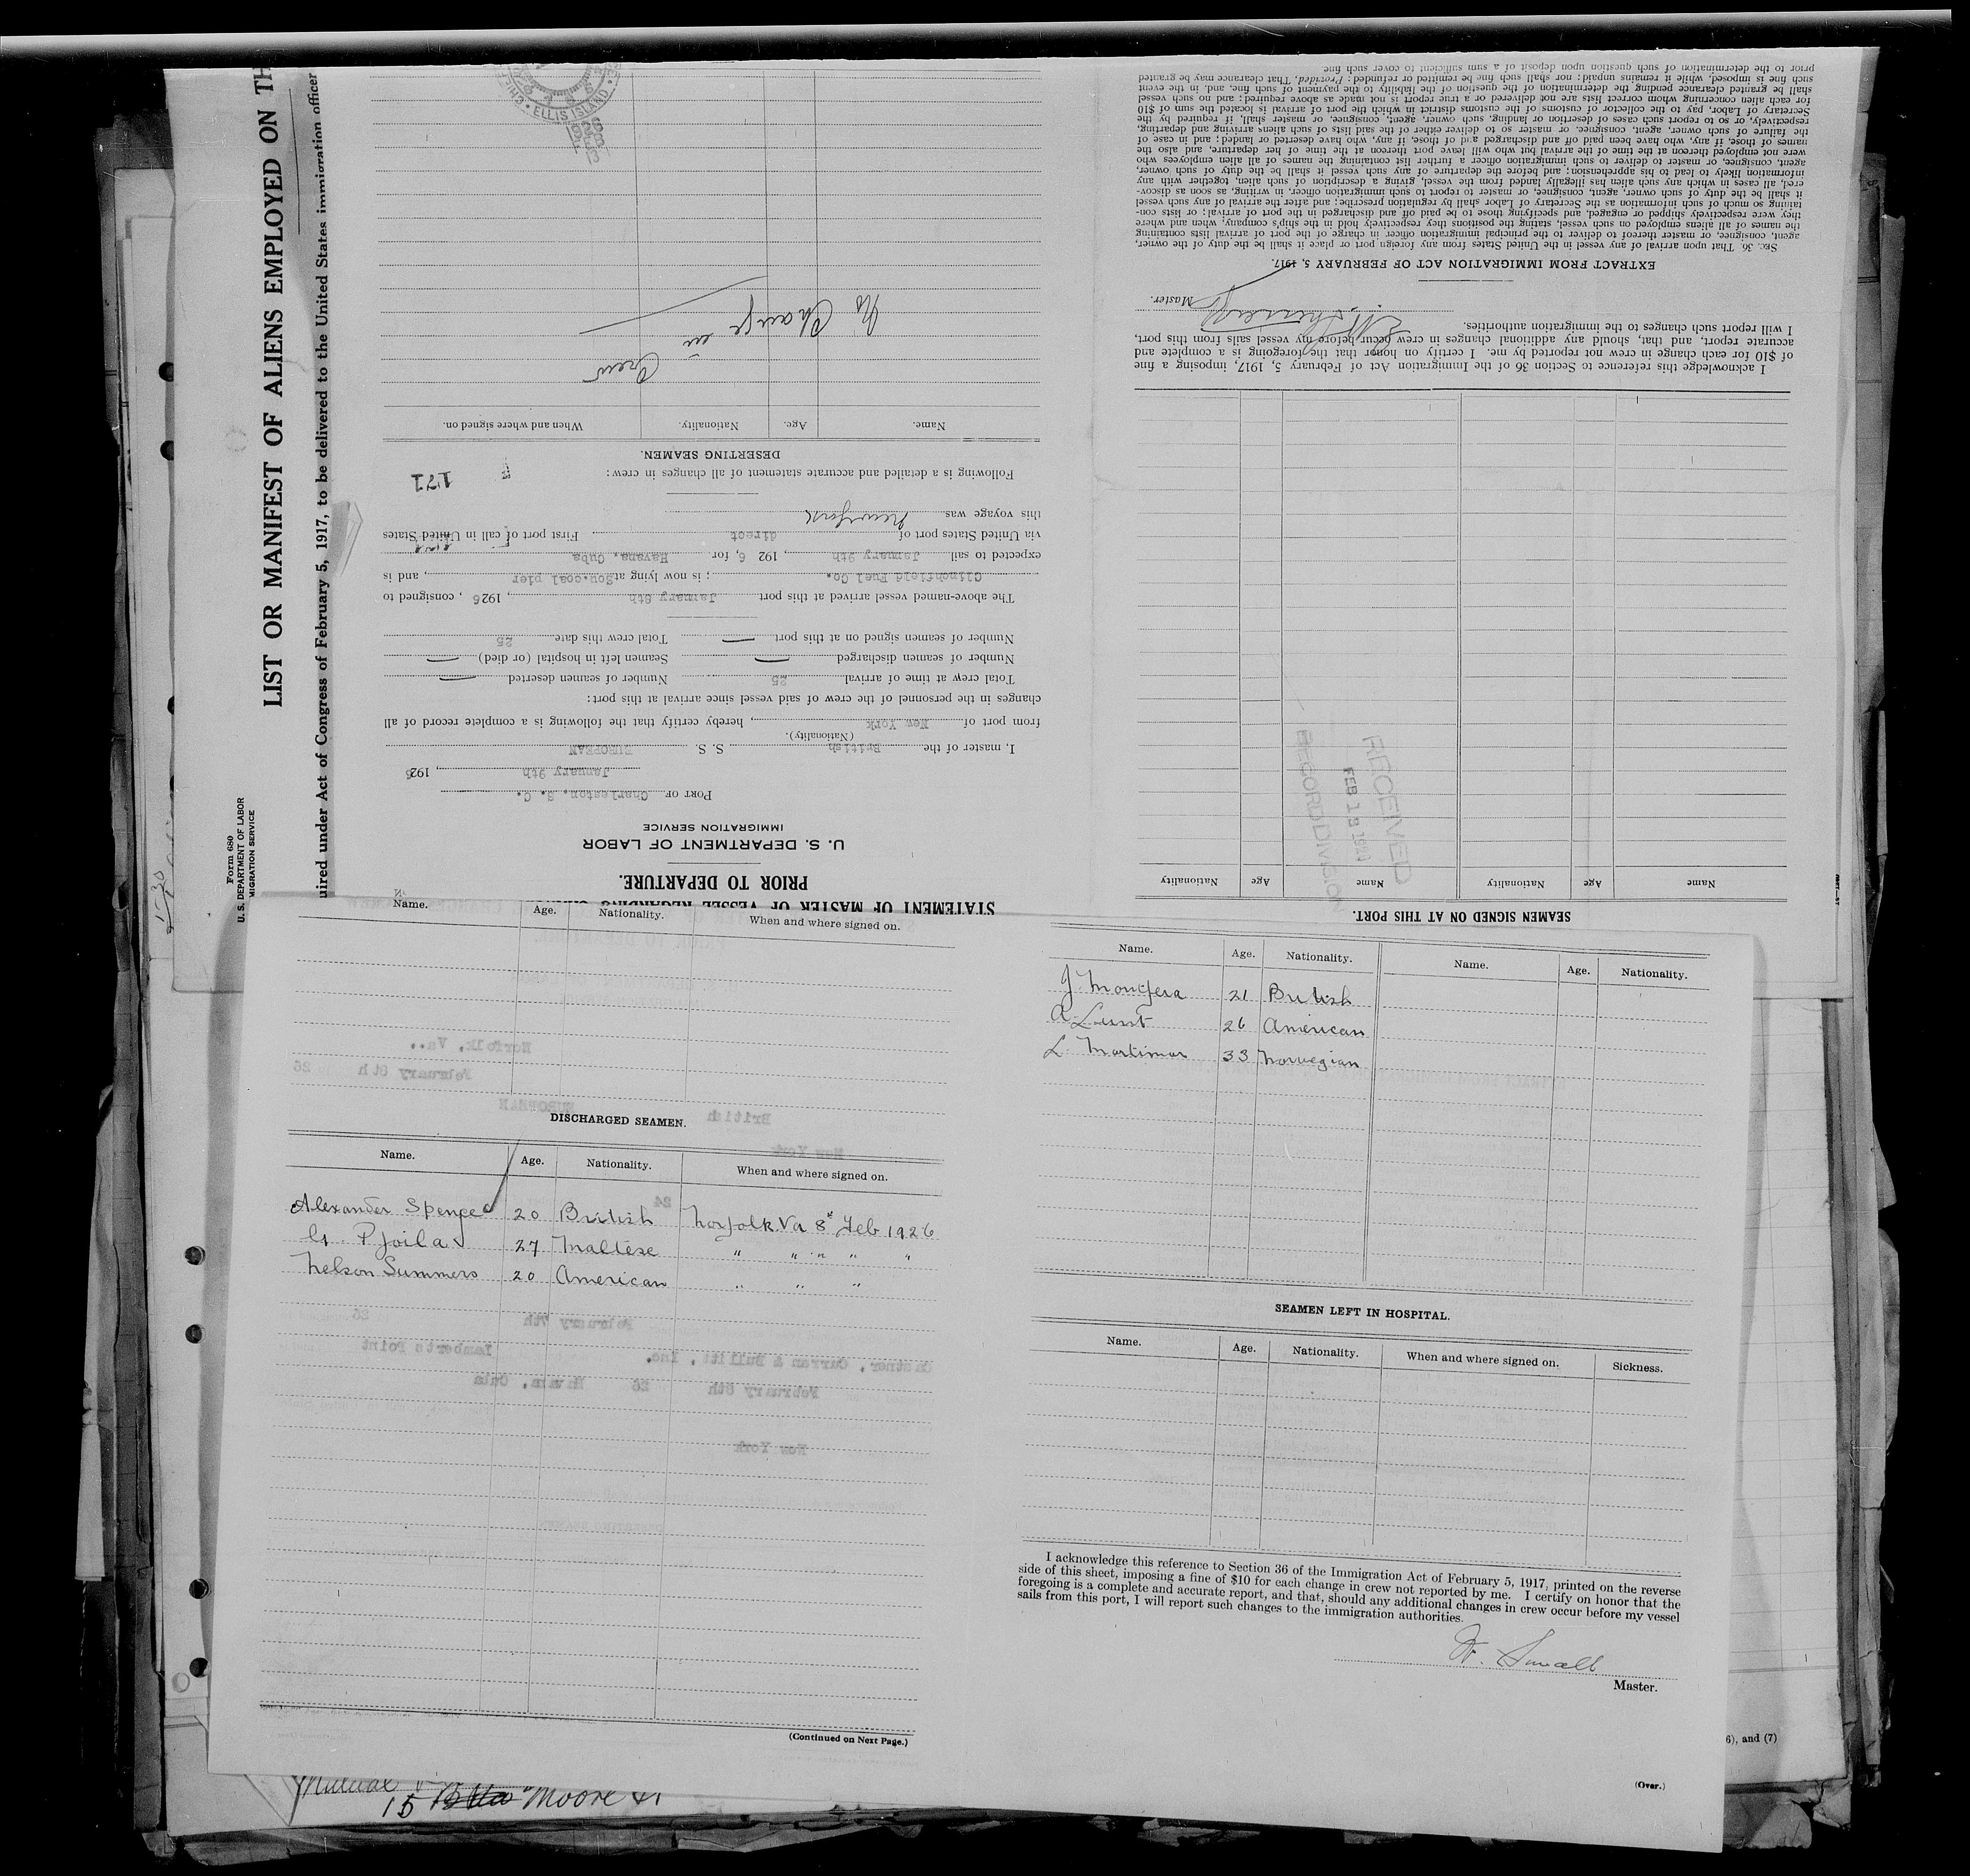 LIST OR MANIFEST OF ALIENS EMPLOYED ON TH
uired under Act of Congress of February 5, 1917, to be delivered to the United States immigration officer
Form 680
U. S. DEPARTMENT OF LABOR
MIGRATION SERVICE
STATEMENT OF MASTER OF VESSEL REGARDING
PRIOR TO DEPARTURE.
U. S. DEPARTMENT OF LABOR
IMMIGRATION SERVICE
PORT OF Charleston, S. C.
January 9th, 1926
I, master of the British S. S. EUROPEAN
(Nationality).
from port of New York, hereby certify that the following is a complete record of all
changes in the personnel of the crew of said vessel since arrival at this port:
Total crew at time of arrival 25 Number of seamen deserted —
Number of seamen discharged — Seamen left in hospital (or died) —
Number of seamen signed on at this port — Total crew this date 25
The above-named vessel arrived at this port January 8th, 1926, consigned to
Clinchfield Fuel Co.; is now lying at Sou.coal pier, and is
expected to sail January 9th, 1926, for Havana, Cuba
via United States port of direct First port of call in United States
this voyage was New York
171
Following is a detailed and accurate statement of all changes in crew:
DESERTING SEAMEN.
Name. Age. Nationality. When and where signed on.
No Change in Crew
ELLIS ISLAND
SEAMEN SIGNED ON AT THIS PORT.
Name Age Nationality Name Age Nationality
RECEIVED
FEB 18
RECORD DIVISION
I acknowledge this reference to Section 36 of the Immigration Act of February 5, 1917, imposing a fine
of $10 for each change in crew not reported by me. I certify on honor that the foregoing is a complete and
accurate report, and that, should any additional changes in crew occur before my vessel sails from this port,
I will report such changes to the immigration authorities.
Master.
EXTRACT FROM IMMIGRATION ACT OF FEBRUARY 5, 1917.
SEC. 36. That upon arrival of any vessel in the United States from any foreign port or place it shall be the duty of the owner,
agent, consignee, or master thereof to deliver to the principal immigration officer in charge of the port of arrival lists containing
the names of all aliens employed on such vessel, stating the positions they respectively hold in the ship's company, when and where
they were respectively shipped or engaged, and specifying those to be paid off and discharged in the port of arrival; or lists con-
taining so much of such information as the Secretary of Labor shall by regulation prescribe; and after the arrival of any such vessel
it shall be the duty of such owner, agent, consignee, or master to report to such immigration officer, in writing, as soon as discov-
ered, all cases in which any such alien has illegally landed from the vessel, giving a description of such alien, together with any
information likely to lead to his apprehension; and before the departure of any such vessel it shall be the duty of such owner,
agent, consignee, or master to deliver to such immigration officer a further list containing the names of all alien employees who
were not employed thereon at the time of the arrival but who will leave port thereon at the time of her departure, and also the
names of those, if any, who have been paid off and discharged and of those, if any, who have deserted or landed; and in case of
the failure of such owner, agent, consignee, or master so to deliver either of the said lists of such aliens arriving and departing,
respectively, or so to report such cases of desertion or landing, such owner, agent, consignee, or master, shall, if required by the
Secretary of Labor, pay to the collector of customs of the customs district in which the port of arrival is located the sum of $10
for each alien concerning whom correct lists are not delivered or a true report is not made as above required; and no such vessel
shall be granted clearance pending the determination of the question of the liability to the payment of such fine, and, in the event
such fine is imposed, while it remains unpaid; nor shall such fine be remitted or refunded: Provided, That clearance may be granted
prior to the determination of such question upon deposit of a sum sufficient to cover such fine.
Name. Age. Nationality. When and where signed on.
Norfolk, Va.,
February 8th 26
British EUROPEAN
New York
DISCHARGED SEAMEN.
Name. Age. Nationality. When and where signed on.
24
Alexander Spence 20 British Norfolk Va 8th Feb 1926
G Pjoila 27 Maltese " " " " "
Nelson Summers 20 American " " "
February 7th 26
Castner, Curran & Bullitt, Inc. Lamberts Point
February 8th 26 Havana, Cuba
New York
(Continued on Next Page.)
Name. Age. Nationality. Name. Age. Nationality.
J Montfera 21 British
A Lunt 26 American
L Mortimor 33 Norwegian
SEAMEN LEFT IN HOSPITAL.
Name. Age. Nationality. When and where signed on. Sickness.
I acknowledge this reference to Section 36 of the Immigration Act of February 5, 1917, printed on the reverse
side of this sheet, imposing a fine of $10 for each change in crew not reported by me. I certify on honor that the
foregoing is a complete and accurate report, and that, should any additional changes in crew occur before my vessel
sails from this port, I will report such changes to the immigration authorities.
W. Small
Master.
(Over.)
6), and (7)
Mutual
15 Moore St